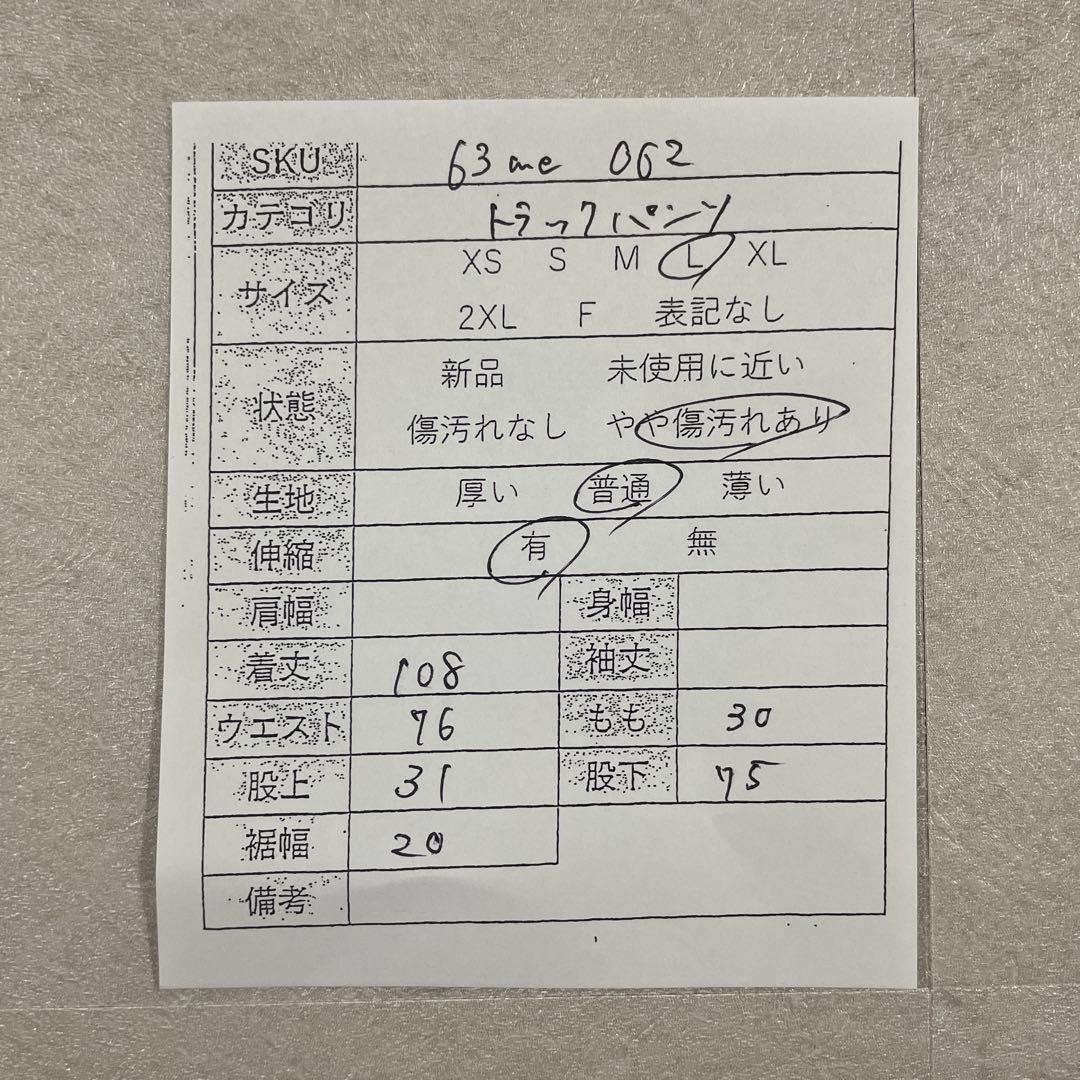 SKU 63me 062
カテゴリ トラックパンツ
サイズ XS S M L XL
2XL F 表記なし
状態 新品 未使用に近い
傷汚れなし やや傷汚れあり
生地 厚い 普通 薄い
伸縮 有 無
肩幅 身幅
着丈 108 袖丈
ウエスト 76 もも 30
股上 31 股下 75
裾幅 20
備考